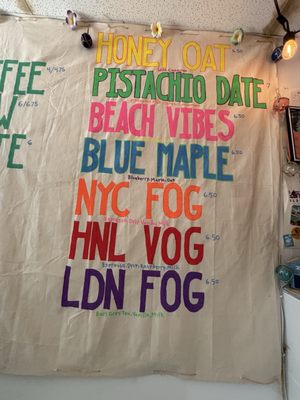 HONEY OAT 6.50
PISTACHIO DATE 7
BEACH VIBES 6.50
BLUE MAPLE 6.50
Blueberry, Maple, Oat
NYC FOG 6.50
HNL VOG 6.50
LDN FOG 6.50
Earl Grey Tea, Vanilla, Milk
FFEE 4/4.75
W 6/6.75
TE 6